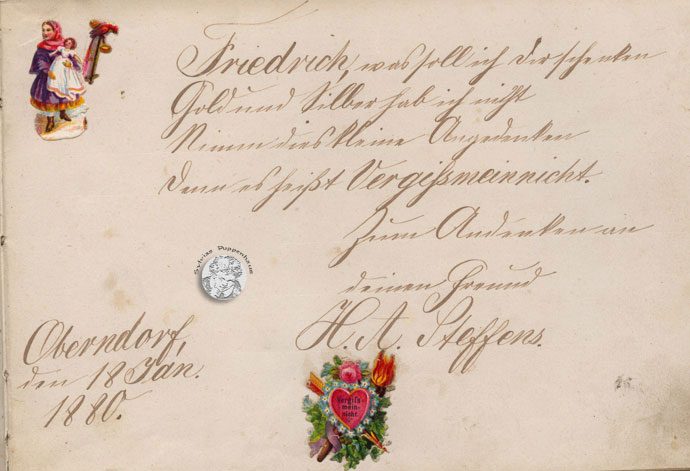 Friedrich, was soll ich dir schenken
Gold und Silber hab ich nicht
Nimm dies kleine Angedenken
Denn es heißt Vergißmeinnicht.
Zum Andenken an
deinen Freund
H. A. Steffens.
Oberndorf,
den 18 Jan.
1880.
Sylvias Puppenhaus
Vergiß-
mein-
nicht